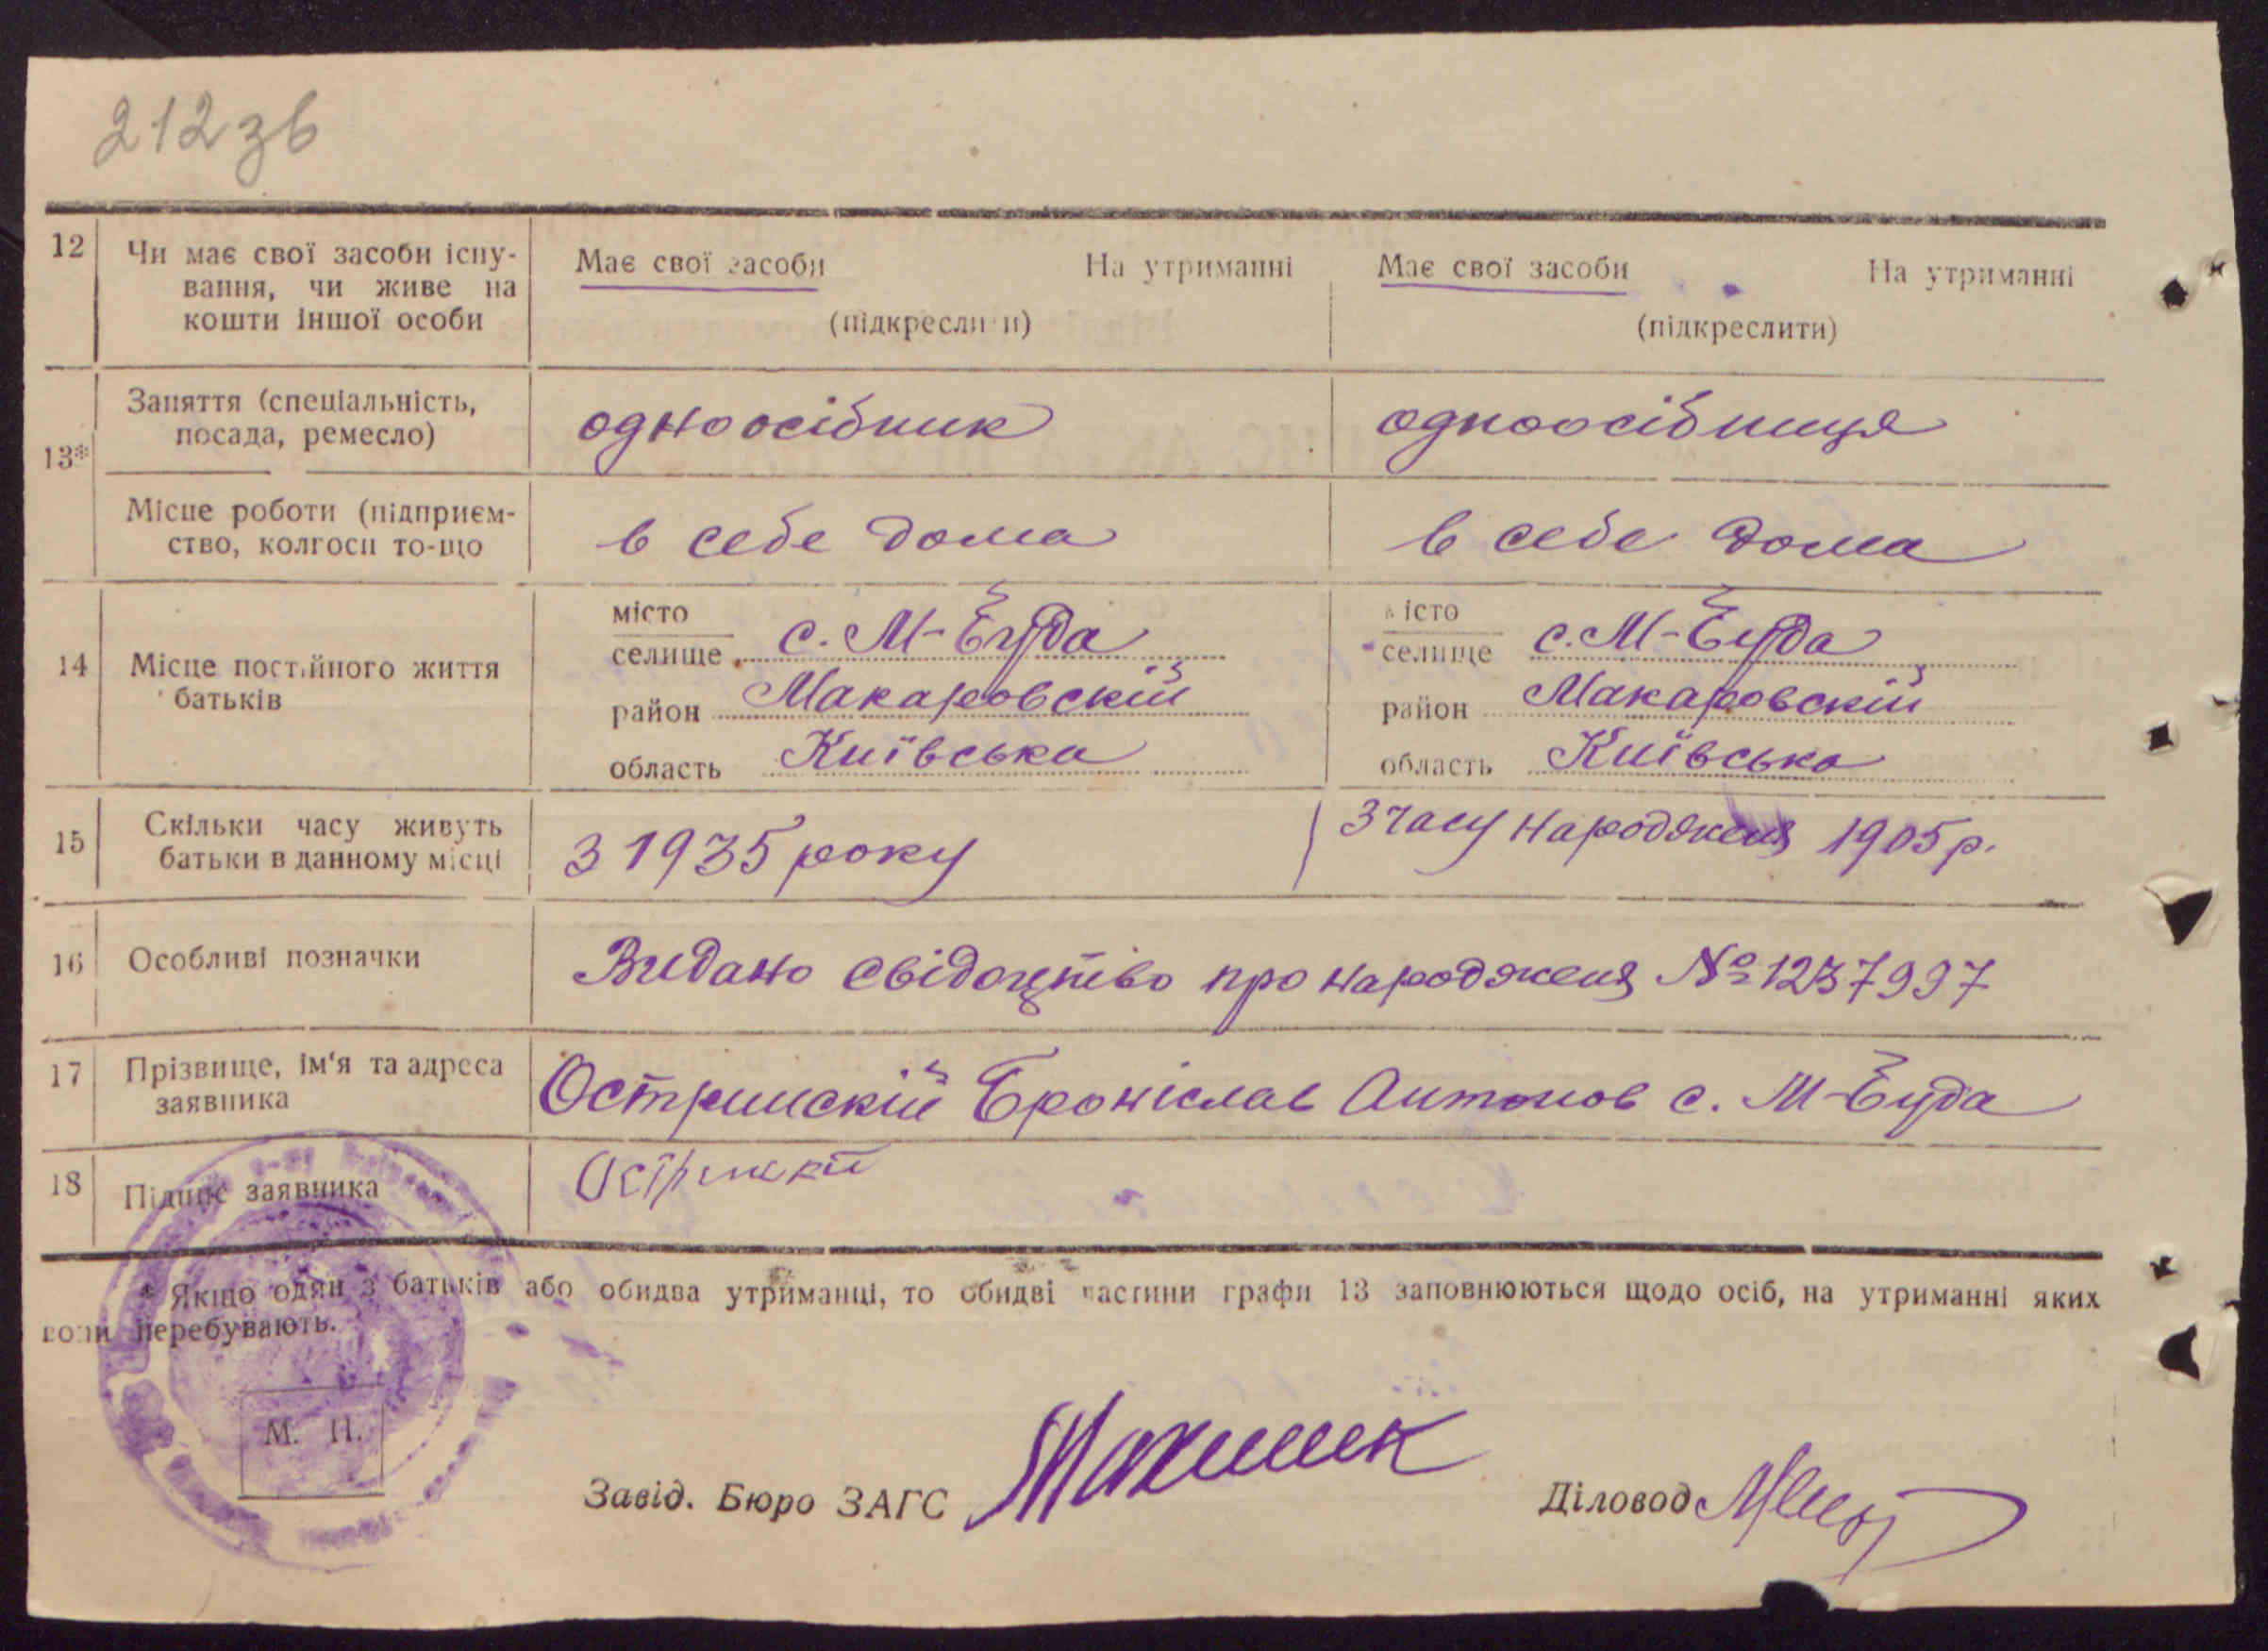 212зв
12 Чи має свої засоби існу-
вання, чи живе на
кошти іншої особи
Має свої засоби На утриманні
(підкреслити)
Має свої засоби На утриманні
(підкреслити)
13*
Заняття (спеціальність,
посада, ремесло)
одноосібник
одноосібниця
Місце роботи (підприєм-
ство, колгосп то-що
в себе дома
в себе дома
14 Місце постійного життя
батьків
місто
селище с. М-Буда
район Макаровскій
область Київська
місто
селище с. М-Буда
район Макаровскій
область Київська
15 Скільки часу живуть
батьки в данному місці
З 1935 року
З часу народженя 1905 р.
16 Особливі позначки
Видано свідоцтво про народженя № 1237997
17 Прізвище, ім'я та адреса
заявника
Остринскій Броніслав Антонов с. М-Буда
18 Підпис заявника
* Якщо один з батьків або обидва утриманці, то обидві частини графи 13 заповнюються щодо осіб, на утриманні яких
вони перебувають.
М. П.
Завід. Бюро ЗАГС
Діловод